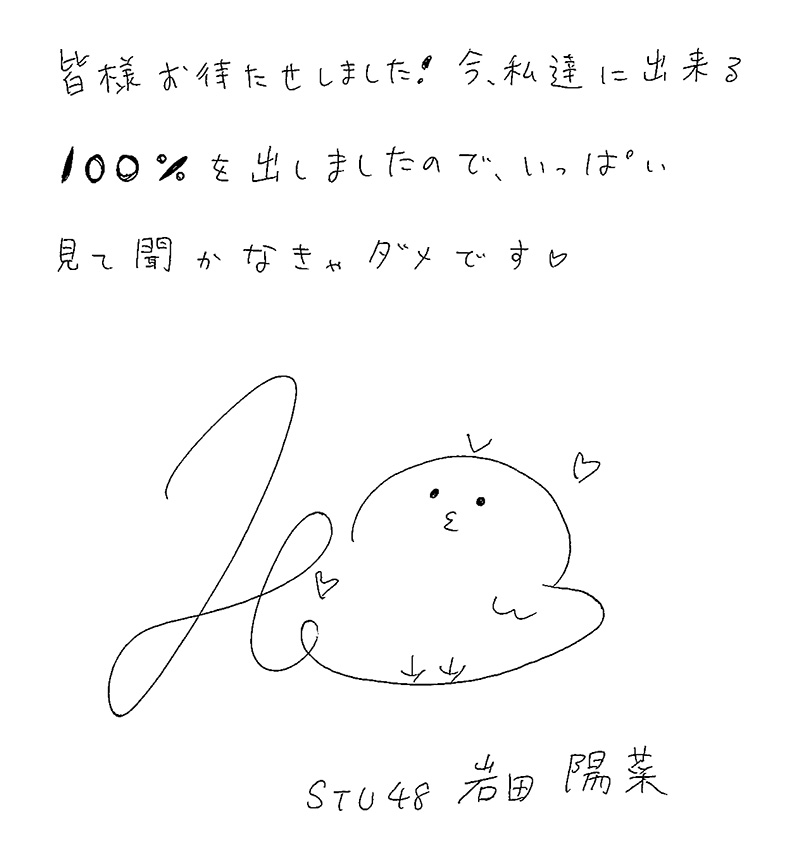 皆様お待たせしました! 今、私達に出来る
100%を出しましたので、いっぱい
見て聞かなきゃダメです♡
STU48 岩田 陽菜